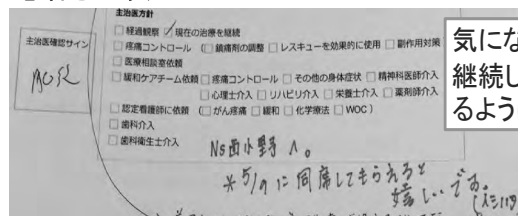 主治医方針
□経過観察 ☑現在の治療を継続
主治医確認サイン
□疼痛コントロール (□鎮痛剤の調整 □レスキューを効果的に使用 □副作用対策
□医療相談室依頼
□緩和ケアチーム依頼 □疼痛コントロール □その他の身体症状 □精神科医師介入
□心理士介入 □リハビリ介入 □栄養士介入 □薬剤師介入
□認定看護師に依頼 (□がん疼痛 □緩和 □化学療法 □WOC)
□歯科介入
□歯科衛生士介入
気にな
継続し
るよう
Ns西小野 へ。
*5/9に同席してもらえると
嬉しいです。